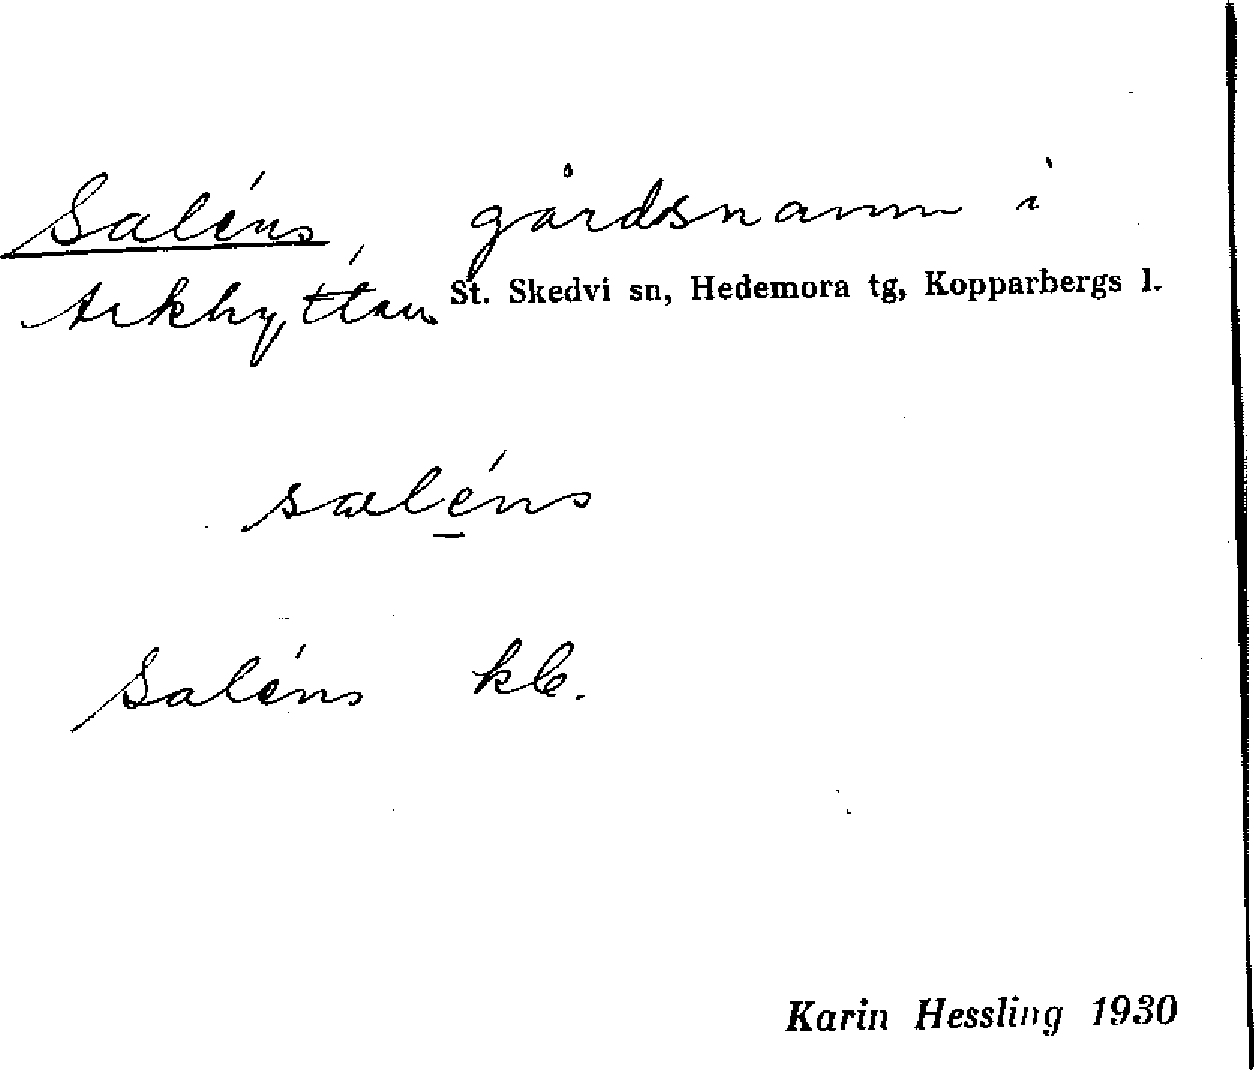 Saléns, gårdsnamn i
Arkhyttan St. Skedvi sn, Hedemora tg, Kopparbergs l.
saléns
Saléns klb.
Karin Hessling 1930